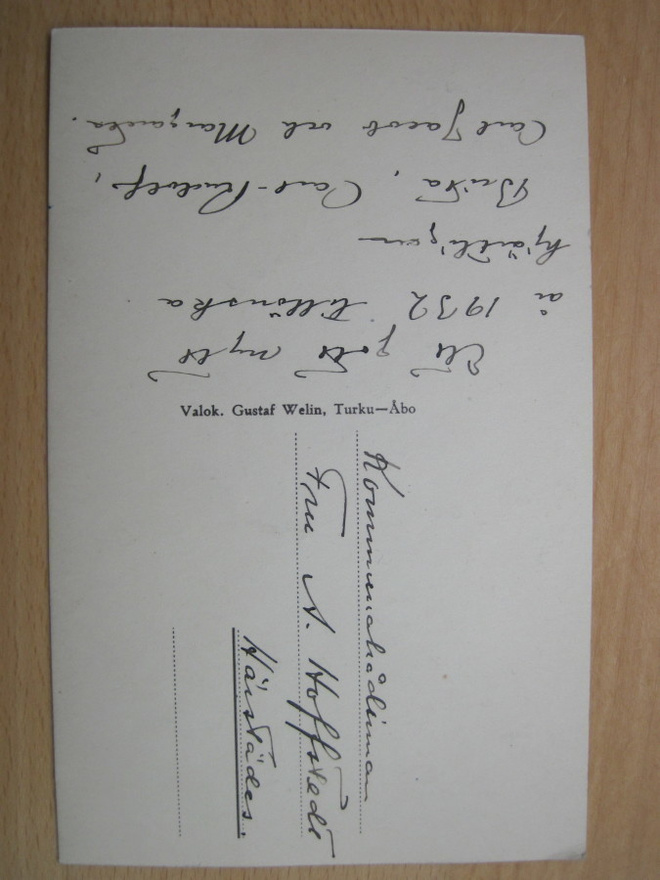 Ett gott nytt
år 1932 tillönska
hjärtligen
Brita, Carl-Rudolf,
Carl Jacob och Margareta.
Valok. Gustaf Welin, Turku—Åbo
Kommunalrådinnan
Fru A. Hoffstedt
Härstädes.